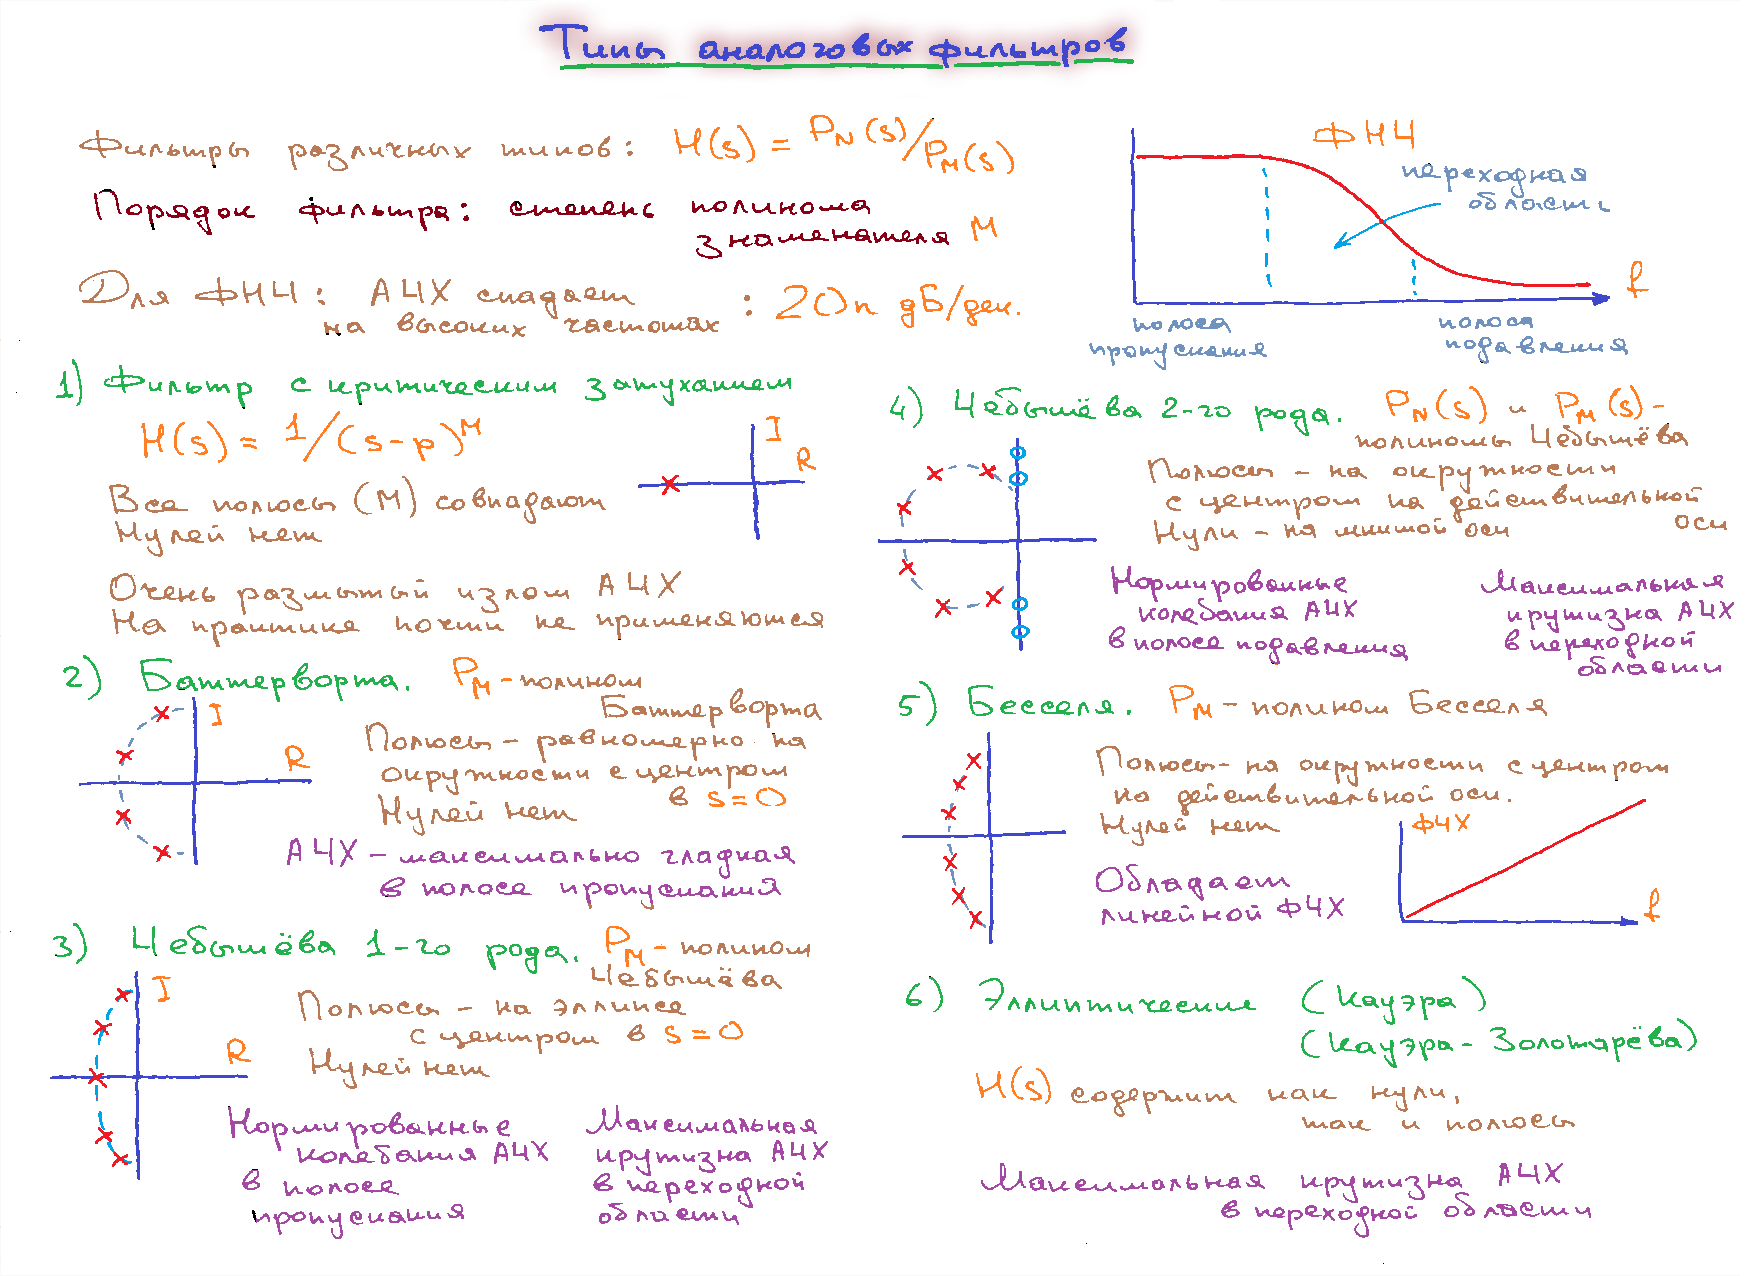 Типы аналоговых фильтров
Фильтры различных типов: H(s) = P_N(s)/P_M(s)
Порядок фильтра: степень полинома
знаменателя M
Для ФНЧ: АЧХ спадает
на высоких частотах : 20n дБ/дек.
ФНЧ
переходная
область
f
полоса
пропускания
полоса
подавления
1) Фильтр с критическим затуханием
H(s) = 1/(s-p)^M
I
R
Все полюсы (M) совпадают
Нулей нет
Очень размытый излом АЧХ
На практике почти не применяются
2) Баттерворта. P_M - полином
Баттерворта
I
R
Полюсы - равномерно на
окружности с центром
в s=0
Нулей нет
АЧХ - максимально гладкая
в полосе пропускания
3) Чебышёва 1-го рода. P_M - полином
Чебышёва
I
R
Полюсы - на эллипсе
с центром в s=0
Нулей нет
Нормированные
колебания АЧХ
в полосе
пропускания
Максимальная
крутизна АЧХ
в переходной
области
4) Чебышёва 2-го рода. P_N(s) и P_M(s) -
полиномы Чебышёва
Полюсы - на окружности
с центром на действительной
оси
Нули - на мнимой оси
Нормированные
колебания АЧХ
в полосе подавления
Максимальная
крутизна АЧХ
в переходной
области
5) Бесселя. P_M - полином Бесселя
Полюсы - на окружности с центром
на действительной оси.
Нулей нет
Обладает
линейной ФЧХ
ФЧХ
f
6) Эллиптические (Кауэра)
(Кауэра - Золотарёва)
H(s) содержит как нули,
так и полюсы
Максимальная крутизна АЧХ
в переходной области